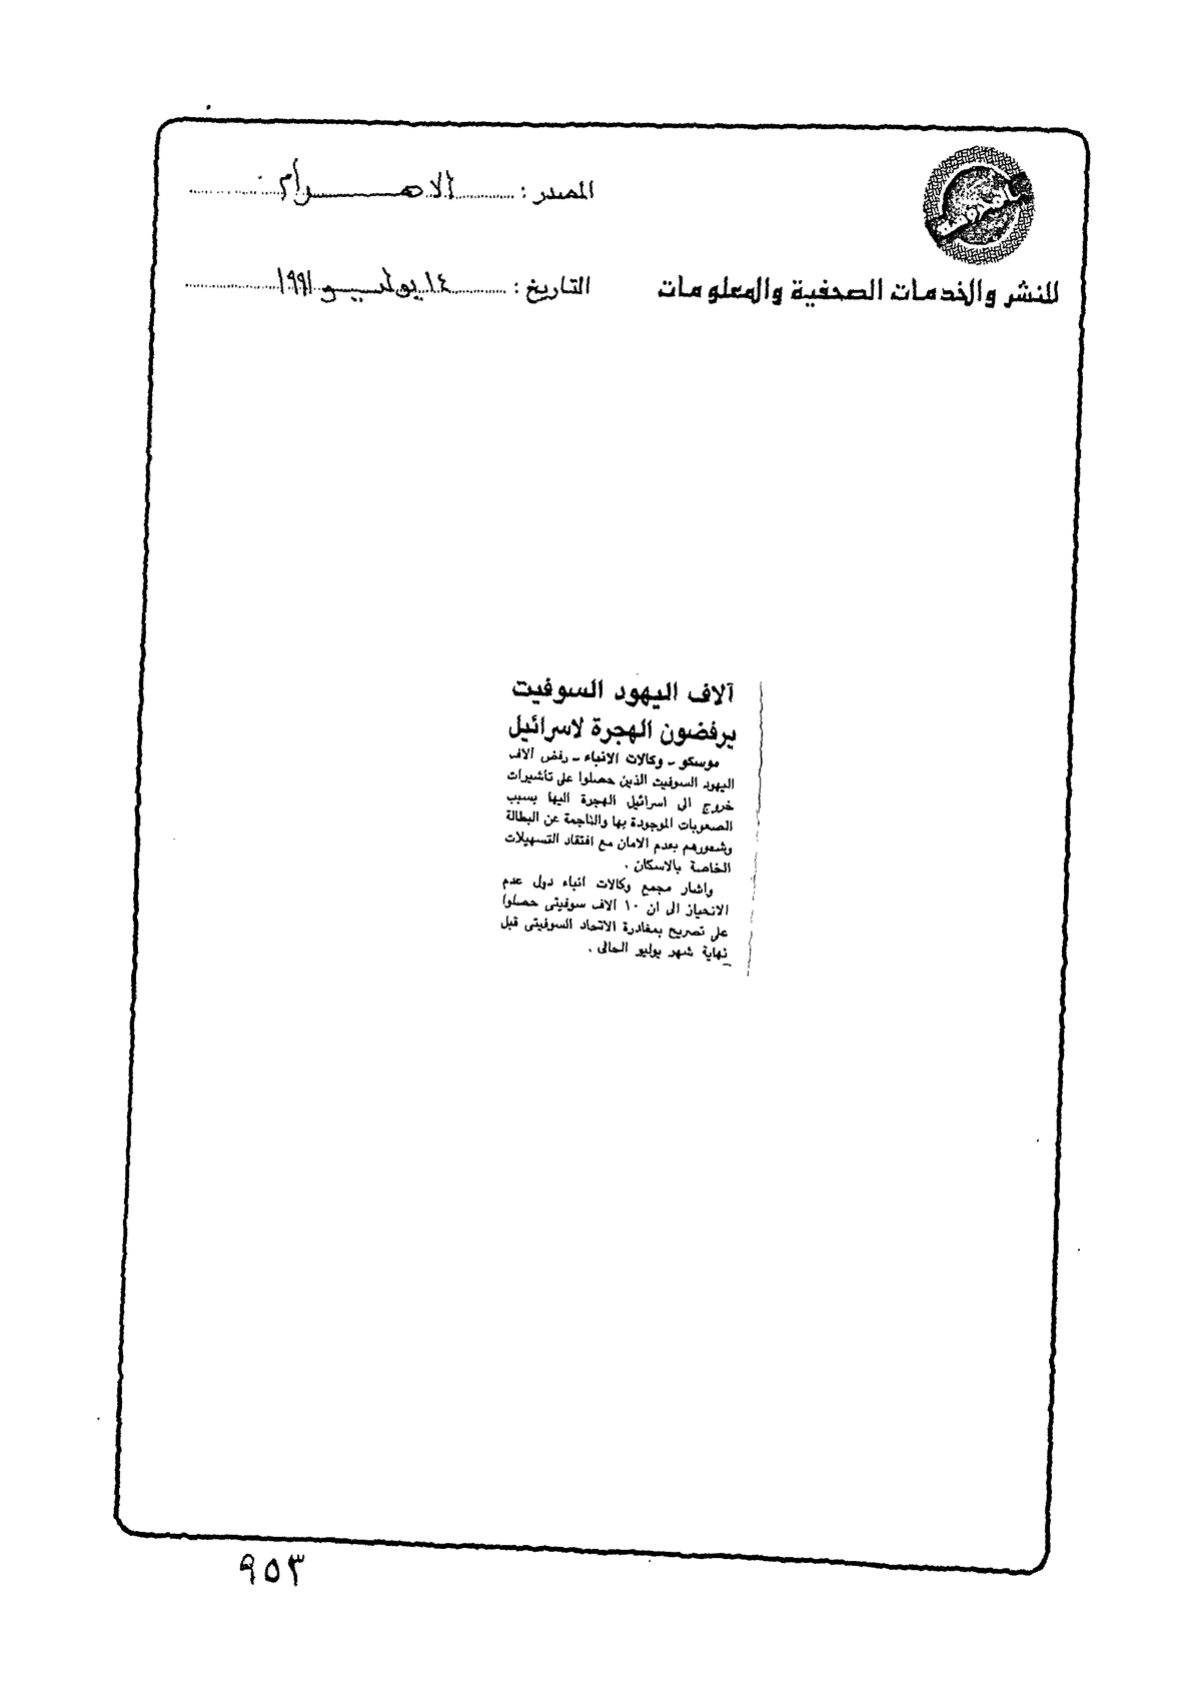 المصدر : الاهرام
للنشر والخدمات الصحفية والمعلومات
التاريخ : ١٤ يوليو ١٩٩١
آلاف اليهود السوفيت
يرفضون الهجرة لاسرائيل
موسكو - وكالات الانباء - رفض آلاف
اليهود السوفيت الذين حصلوا على تأشيرات
خروج الى اسرائيل الهجرة اليها بسبب
الصعوبات الموجودة بها والناجمة عن البطالة
وشعورهم بعدم الامان مع افتقاد التسهيلات
الخاصة بالاسكان .
واشار مجمع وكالات انباء دول عدم
الانحياز الى ان ١٠ آلاف سوفيتى حصلوا
على تصريح بمغادرة الاتحاد السوفيتى قبل
نهاية شهر يوليو الحالى .
٩٥٣